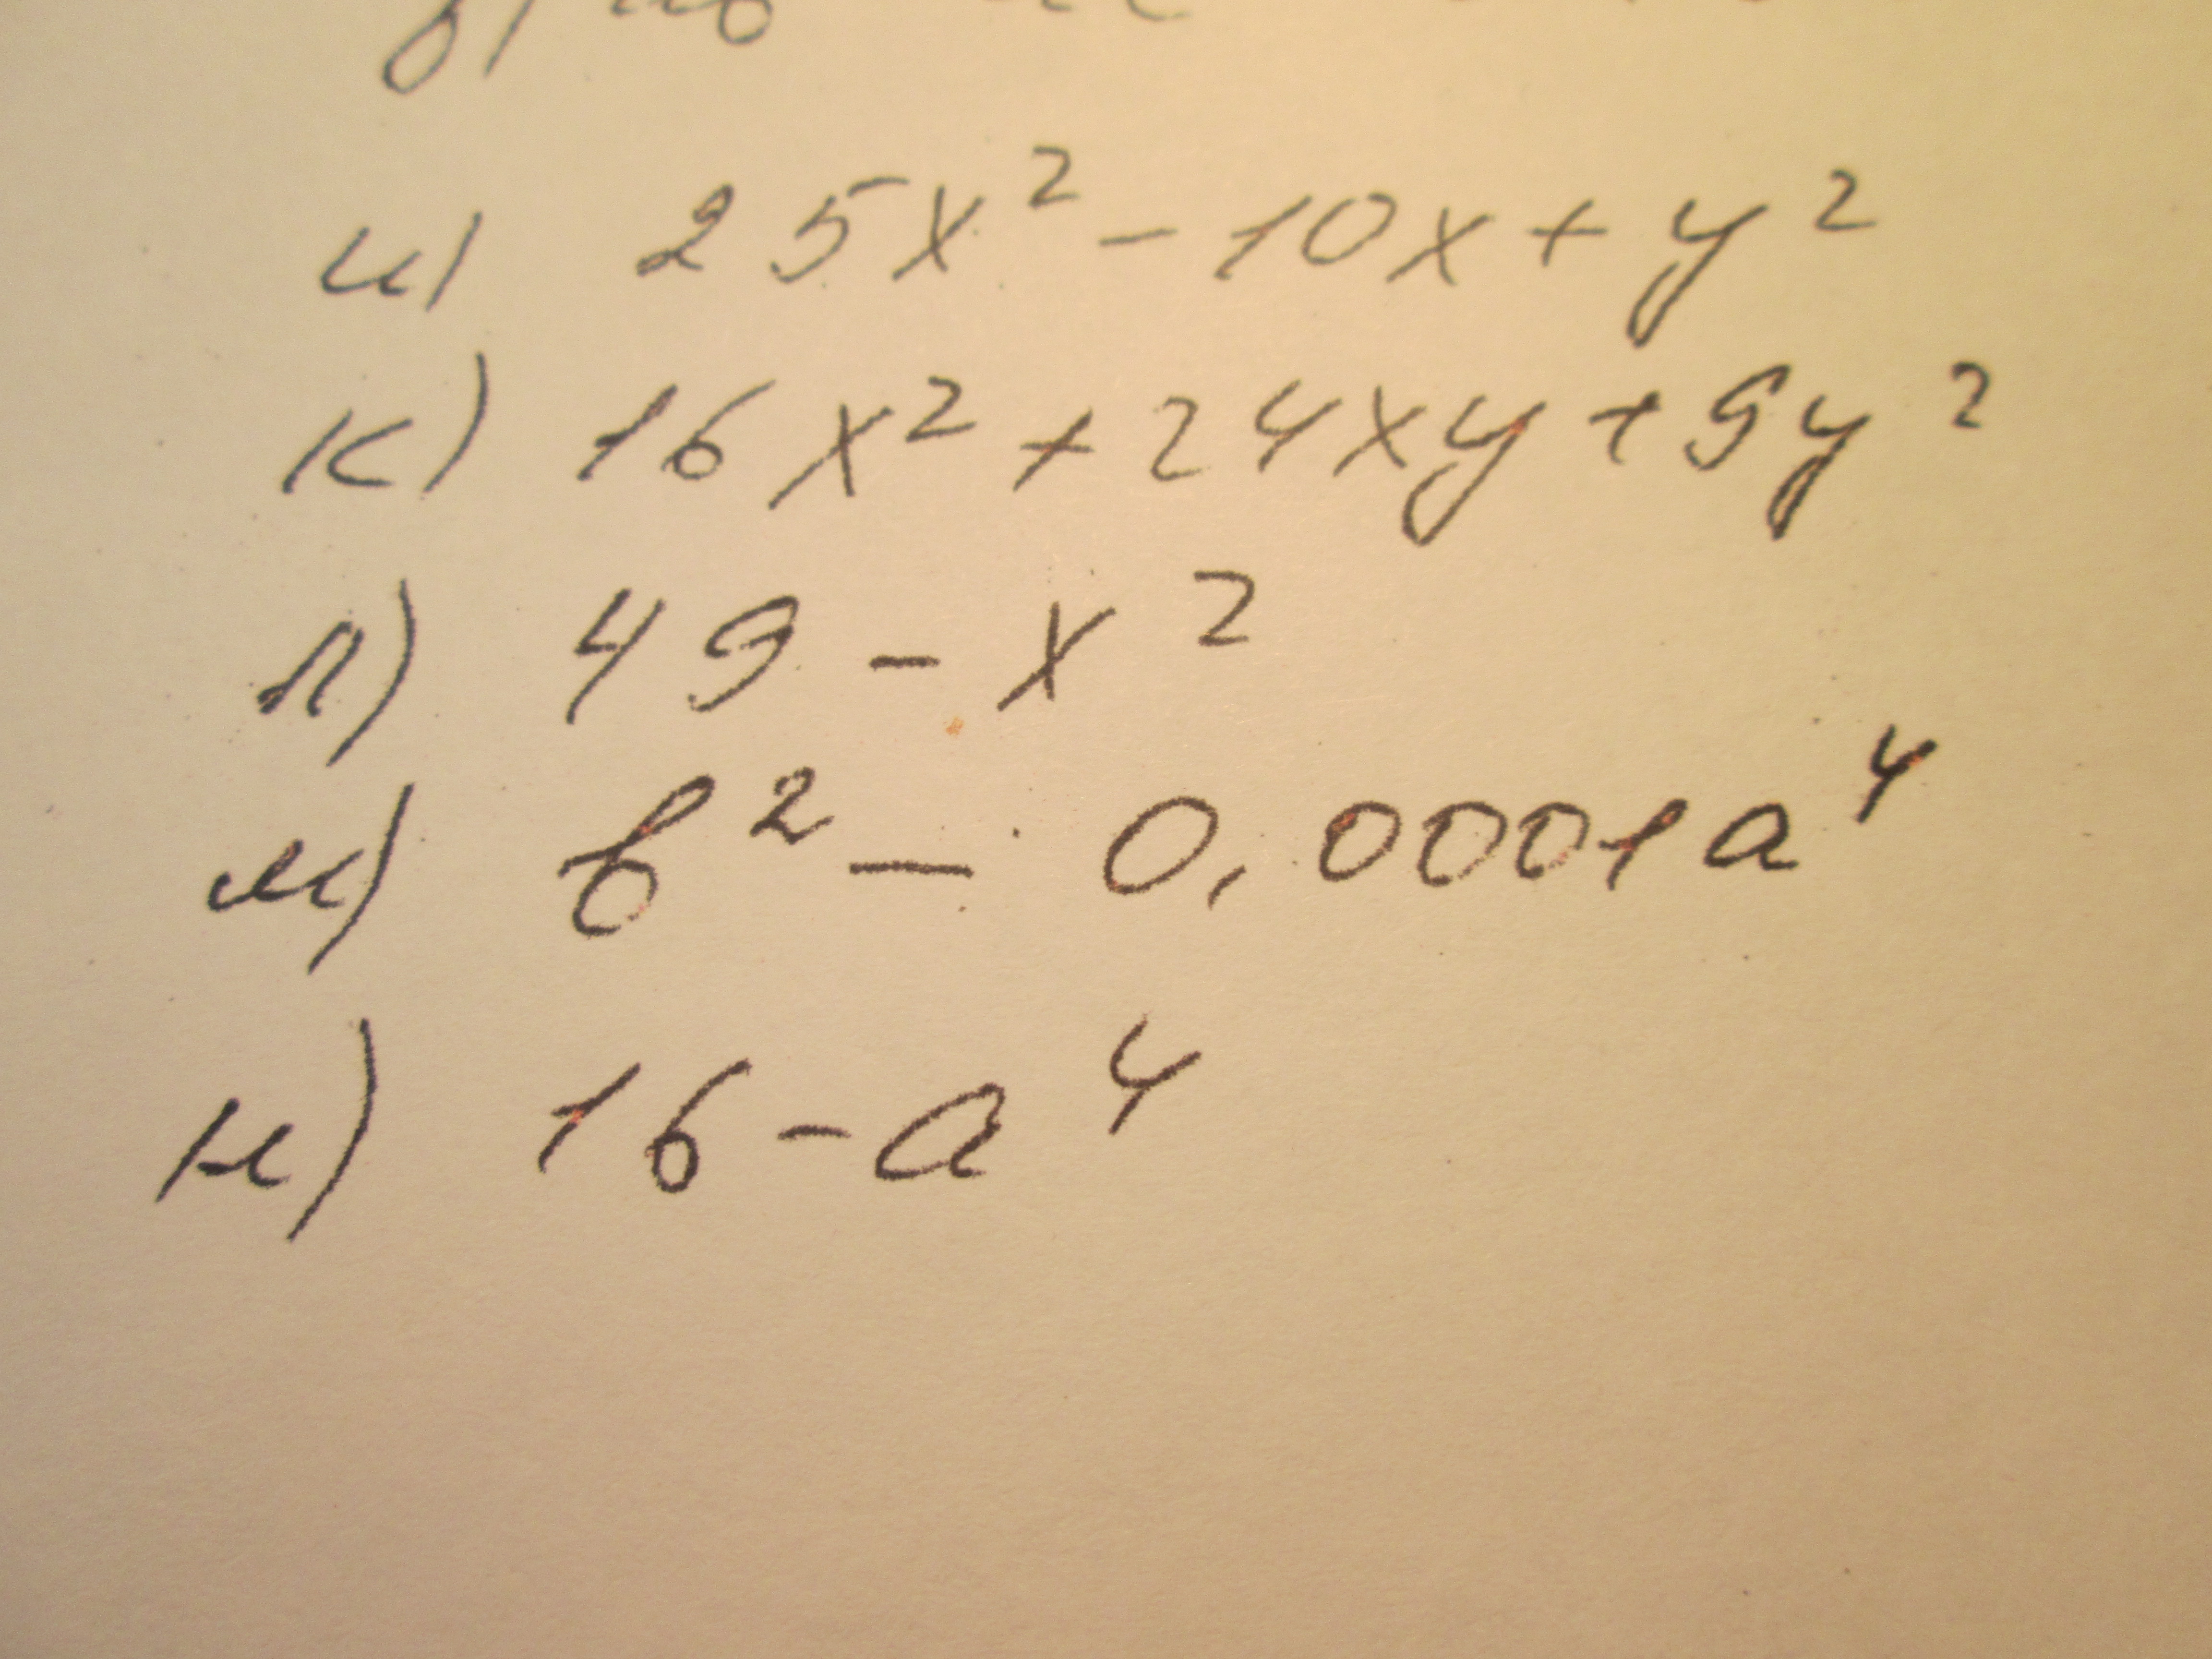 и) 25x² - 10x + y²
к) 16x² + 24xy + 9y²
л) 49 - x²
м) b² - 0,0001a⁴
н) 16 - a⁴